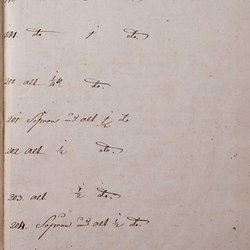 dto 1 dto.
200 alt 1/4 dto.
201 Sopran und alt 1/2 dto
202 alt 1/2 dto.
203. alt 1/2 dto.
204. Sopran und alt 1/2 dto.